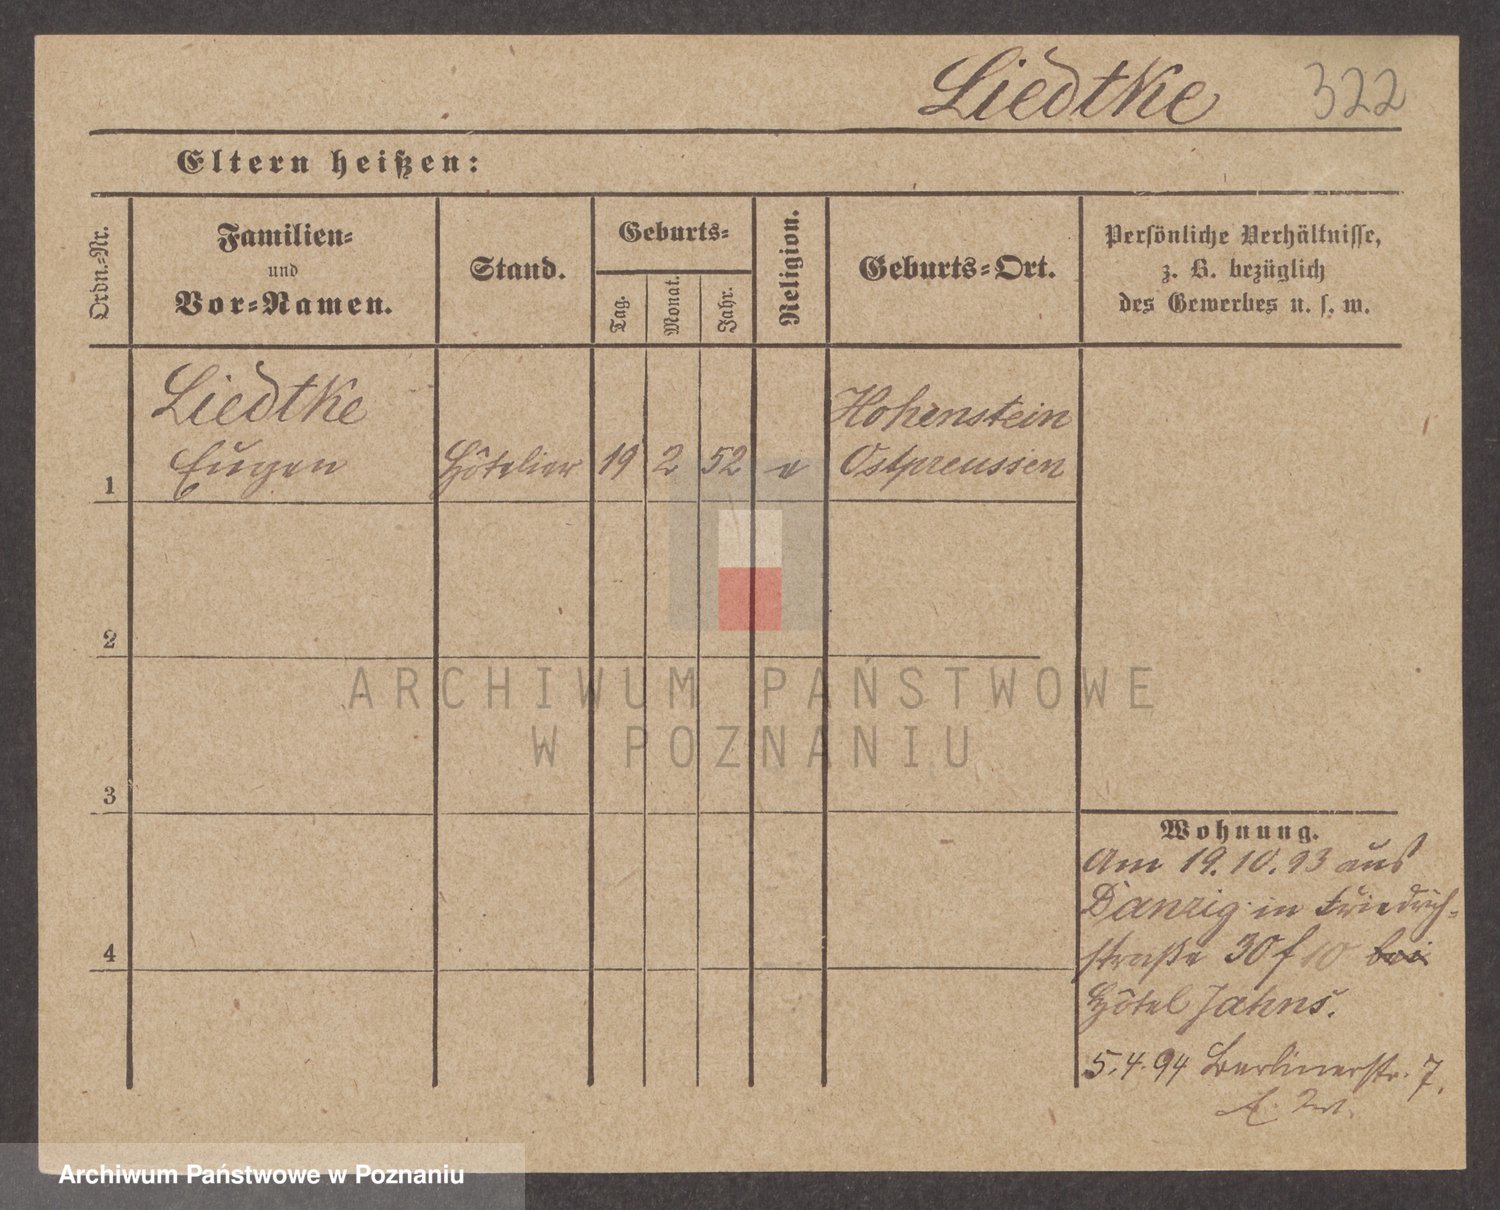 Liedtke 322
Eltern heißen:
Ordn.-Nr.
Familien-
und
Vor-Namen.
Stand.
Geburts-
Tag.
Monat.
Jahr.
Religion.
Geburts-Ort.
Persönliche Verhältnisse,
z. B. bezüglich
des Gewerbes u. s. w.
Liedtke
Hohenstein
1 Eugen Hôtelier 19 2 52 e Ostpreussen
2
ARCHIWUM PAŃSTWOWE
W POZNANIU
3
Wohnung.
Am 19.10.93 aus
Danzig in Friedrich-
4
straße 30 f 10 bei
Hôtel Jahns.
5.4.94 Berlinerstr. 7.
Archiwum Państwowe w Poznaniu